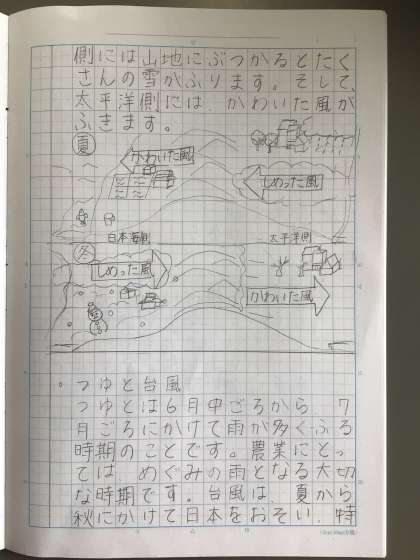 側には山地にぶつかるとたく
さんの雪がふります。そして、
太平洋側には、かわいた風が
ふきます。
夏
かわいた風
しめった風
日本海側
太平洋側
冬
しめった風
かわいた風
。つゆと台風
つゆとは6月中ごろから、7
月ごろにかけて雨が多くふる
時期のことです。農業にとっ
ては、めぐみの雨となる大切
な時期です。台風は、夏から
秋にかけて日本をおそい、特